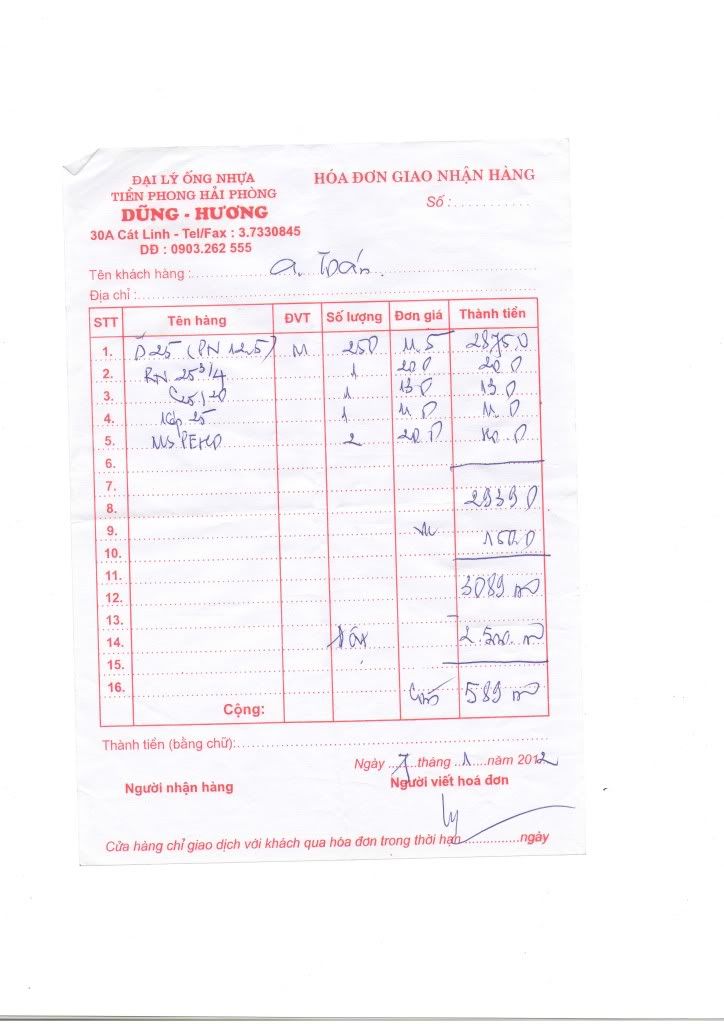 ĐẠI LÝ ỐNG NHỰA
TIỀN PHONG HẢI PHÒNG
DŨNG - HƯƠNG
30A Cát Linh - Tel/Fax : 3.7330845
DĐ : 0903.262 555
HÓA ĐƠN GIAO NHẬN HÀNG
Số : ...........
Tên khách hàng : a. Toán
Địa chỉ :
STT Tên hàng ĐVT Số lượng Đơn giá Thành tiền
1. D25 (PN 12.5) M 250 11.5 2875 0
2. RN 25 3/4 1 20 0 20 0
3. C25/20 1 13 0 13 0
4. 25 1 11 0 11 0
5. MS PEHD 2 20 0
6.
7.
8. 2939 0
9.
10. 150 0
11.
12. 3089
13.
14. 2.500
15.
16. 589
Cộng:
Thành tiền (bằng chữ):
Ngày 7 tháng 1 năm 2012
Người nhận hàng Người viết hoá đơn
Cửa hàng chỉ giao dịch với khách qua hóa đơn trong thời hạn ............... ngày